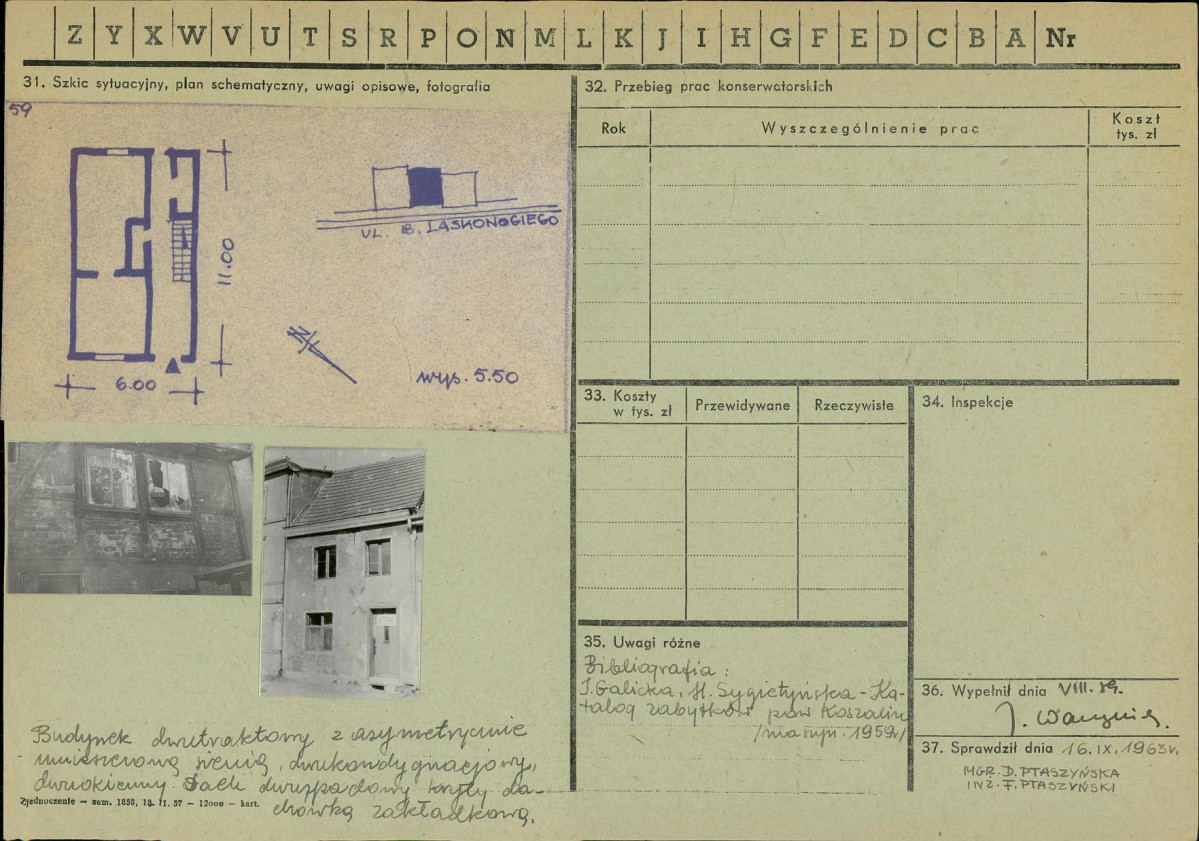 Z Y X W V U T S R P O N M L K J I H G F E D C B A Nr
31. Szkic sytuacyjny, plan schematyczny, uwagi opisowe, fotografia
59
11.00
6.00
UL. B. LASKONOGIEGO
wys. 5.50
Budynek dwutraktowy z asymetrycznie
umieszczoną sienią, dwukondygnacjowy,
dwuokienny. Dach dwuspadowy kryty da-
chówką zakładkową.
Zjednoczenie – zam. 1858, 18. 11. 57 – 12000 – kart.
32. Przebieg prac konserwatorskich
Rok Wyszczególnienie prac Koszt
tys. zł
33. Koszty
w tys. zł
Przewidywane Rzeczywiste
34. Inspekcje
35. Uwagi różne
Bibliografia:
J. Galicka, H. Sygietyńska - Ka-
talog zabytków pow Koszalin
/maszyn. 1959r/
36. Wypełnił dnia VIII.
J.
37. Sprawdził dnia 16.IX.1963r.
MGR. D. PTASZYŃSKA
INŻ. F. PTASZYŃSKI